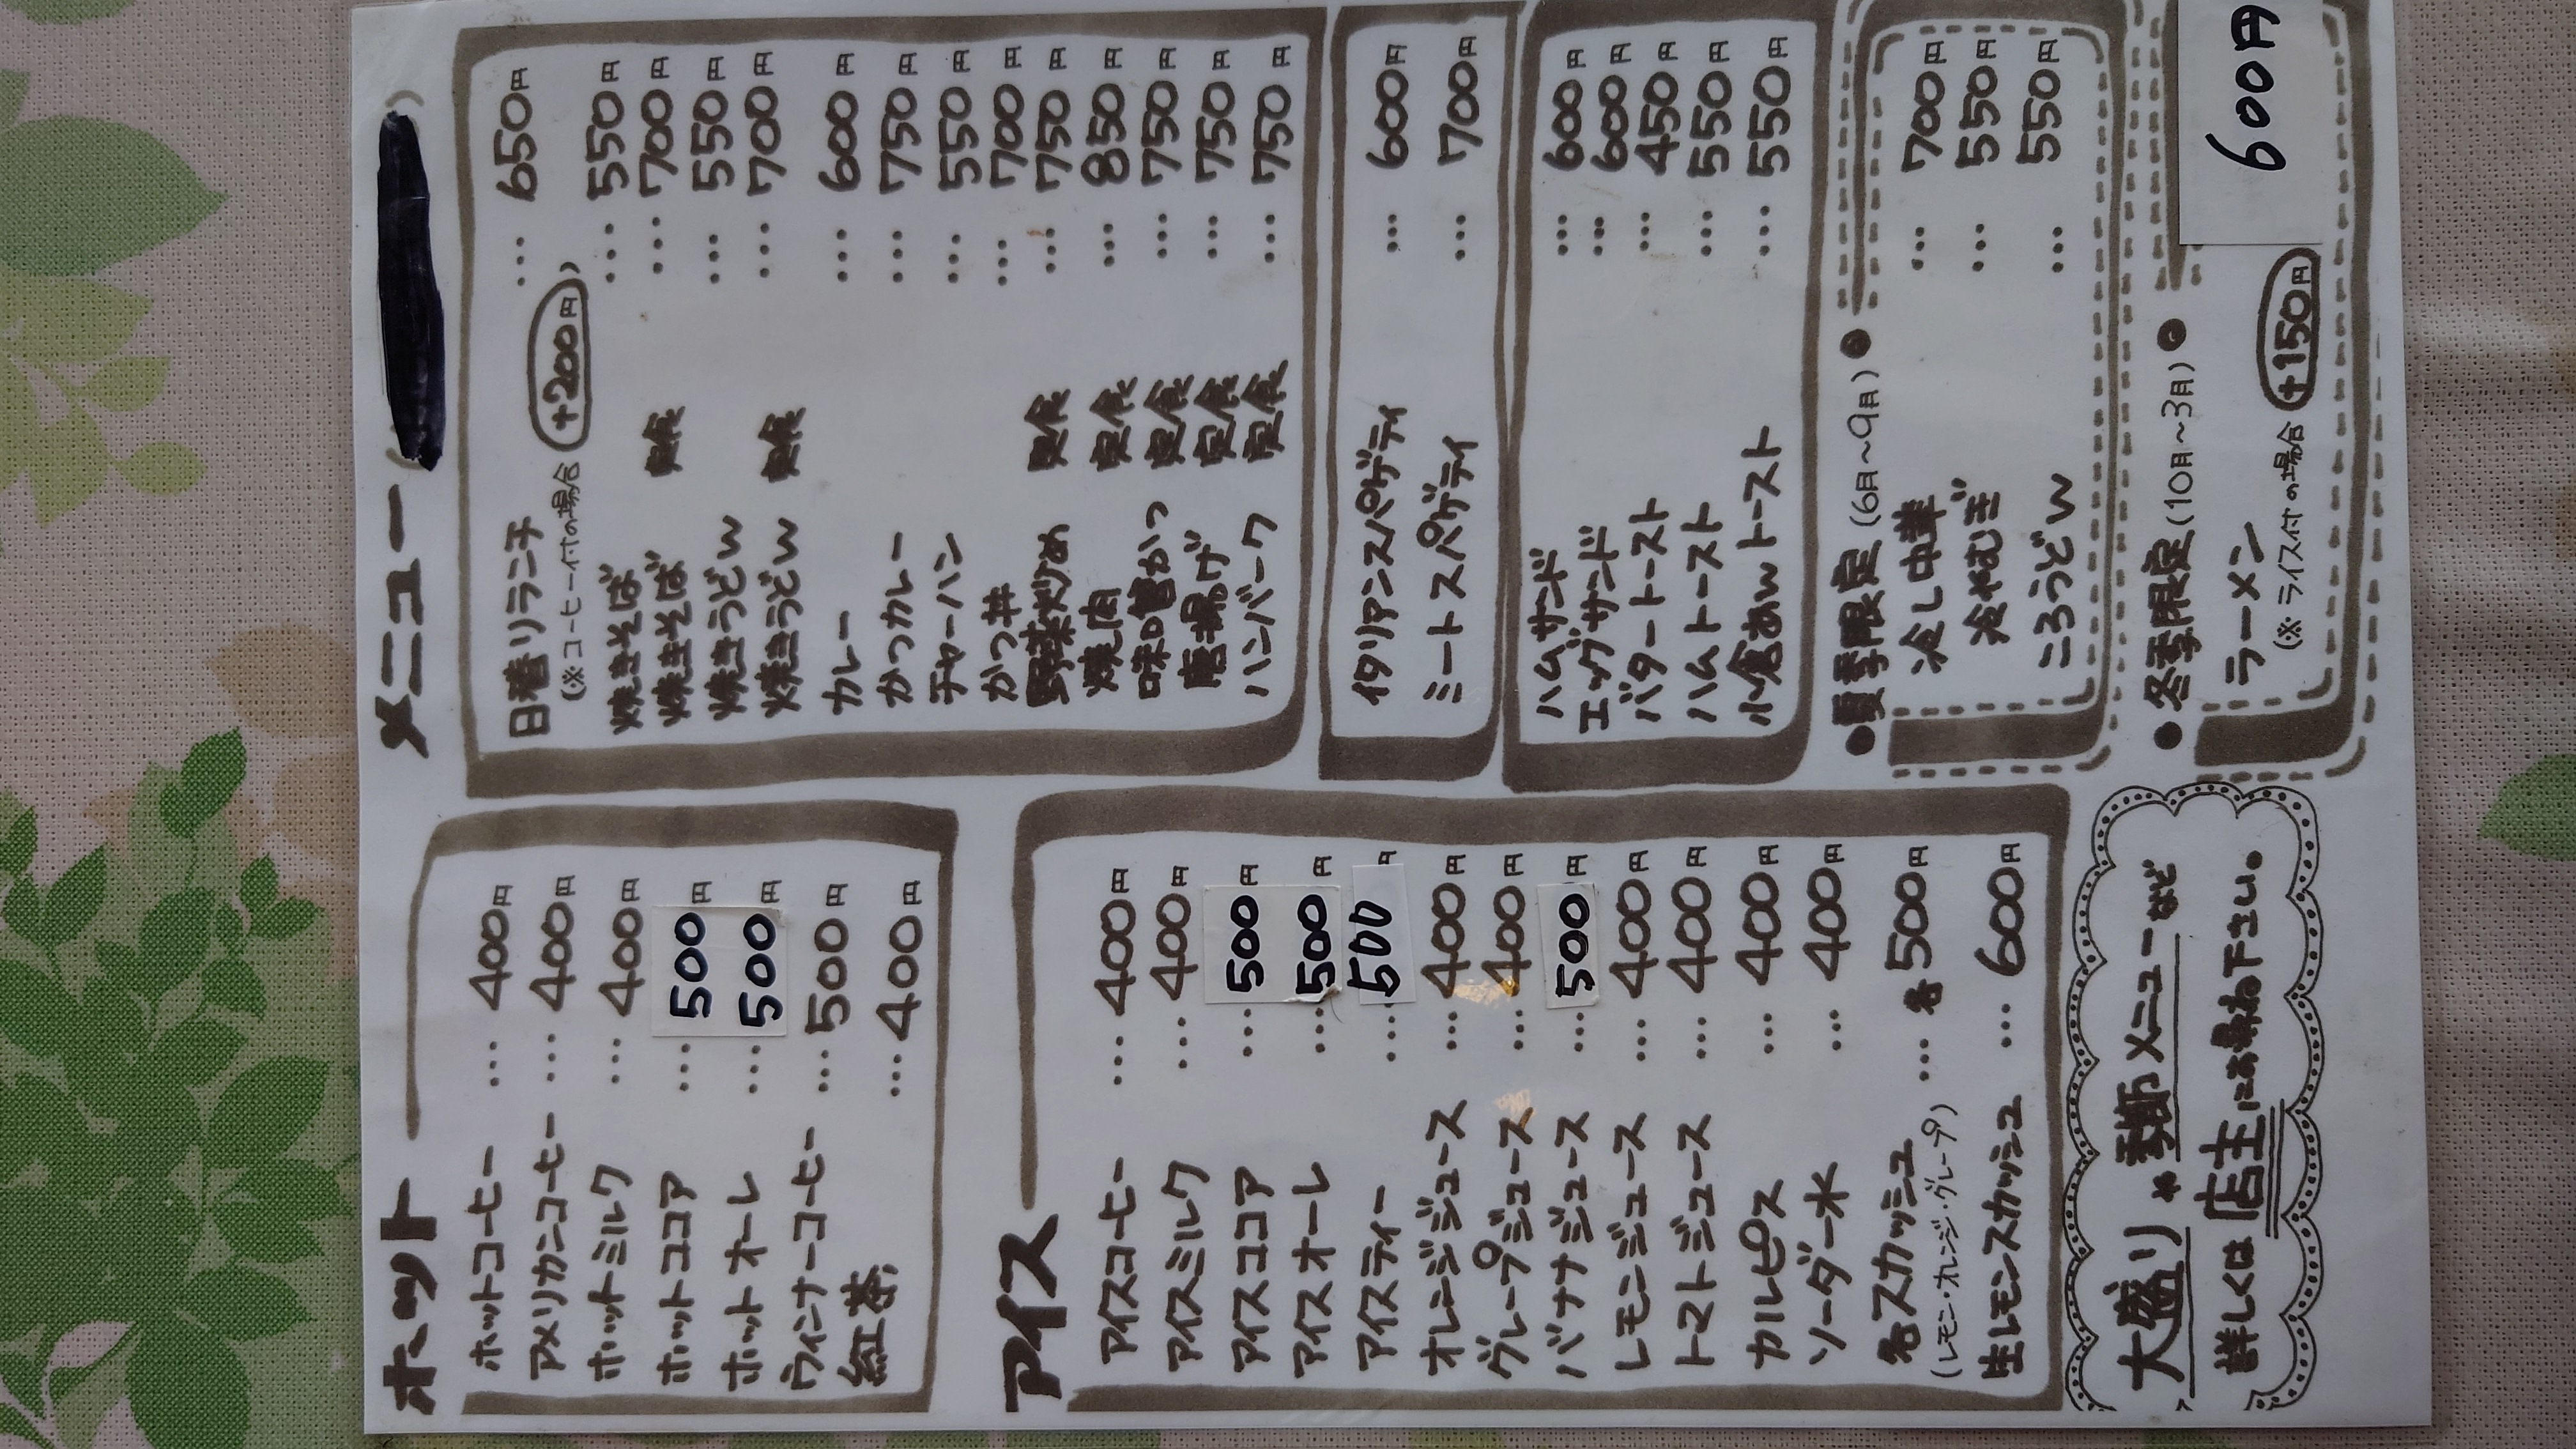 ホット
ホットコーヒー … 400円
アメリカンコーヒー … 400円
ホットミルク … 400円
ホットココア … 500円
ホットオーレ … 500円
ウィンナーコーヒー … 500円
紅茶 … 400円
アイス
アイスコーヒー … 400円
アイスミルク … 400円
アイスココア … 500円
アイスオーレ … 500円
アイスティー … 500円
オレンジジュース … 400円
グレープジュース … 400円
バナナジュース … 500円
レモンジュース … 400円
トマトジュース … 400円
カルピス … 400円
ソーダー水 … 400円
各スカッシュ … 各500円
(レモン・オレンジ・グレープ)
生レモンスカッシュ … 600円
大盛りや季節メニューなど
詳しくは店主にお尋ね下さい。
メニュー
日替りランチ … 650円
(※コーヒー付の場合 +200円)
焼きそば … 550円
焼きそば 定食 … 700円
焼きうどん … 550円
焼きうどん 定食 … 700円
カレー … 600円
かつカレー … 750円
チャーハン … 550円
かつ丼 … 700円
野菜炒め 定食 … 750円
焼し肉 定食 … 850円
味噌かつ 定食 … 750円
唐揚げ 定食 … 750円
ハンバーク 定食 … 750円
イタリアンスパゲティ … 600円
ミートスパゲティ … 700円
ハムサンド … 600円
エッグサンド … 600円
バタートースト … 450円
ハムトースト … 550円
小倉あんトースト … 550円
●夏季限定(6月〜9月)●
冷し中華 … 700円
冷やむぎ … 550円
ころうどん … 550円
●冬季限定(10月〜3月)●
ラーメン 600円
(※ライス付の場合 +150円)